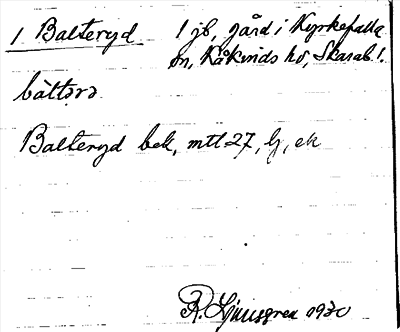 1 Balteryd 1 jb, gård i Kyrkefalla
sn, Kåkinds hd, Skarab. l.
bàttərə
Balteryd bek, mtl 27, lj, ek
R. Ljunggren 1930